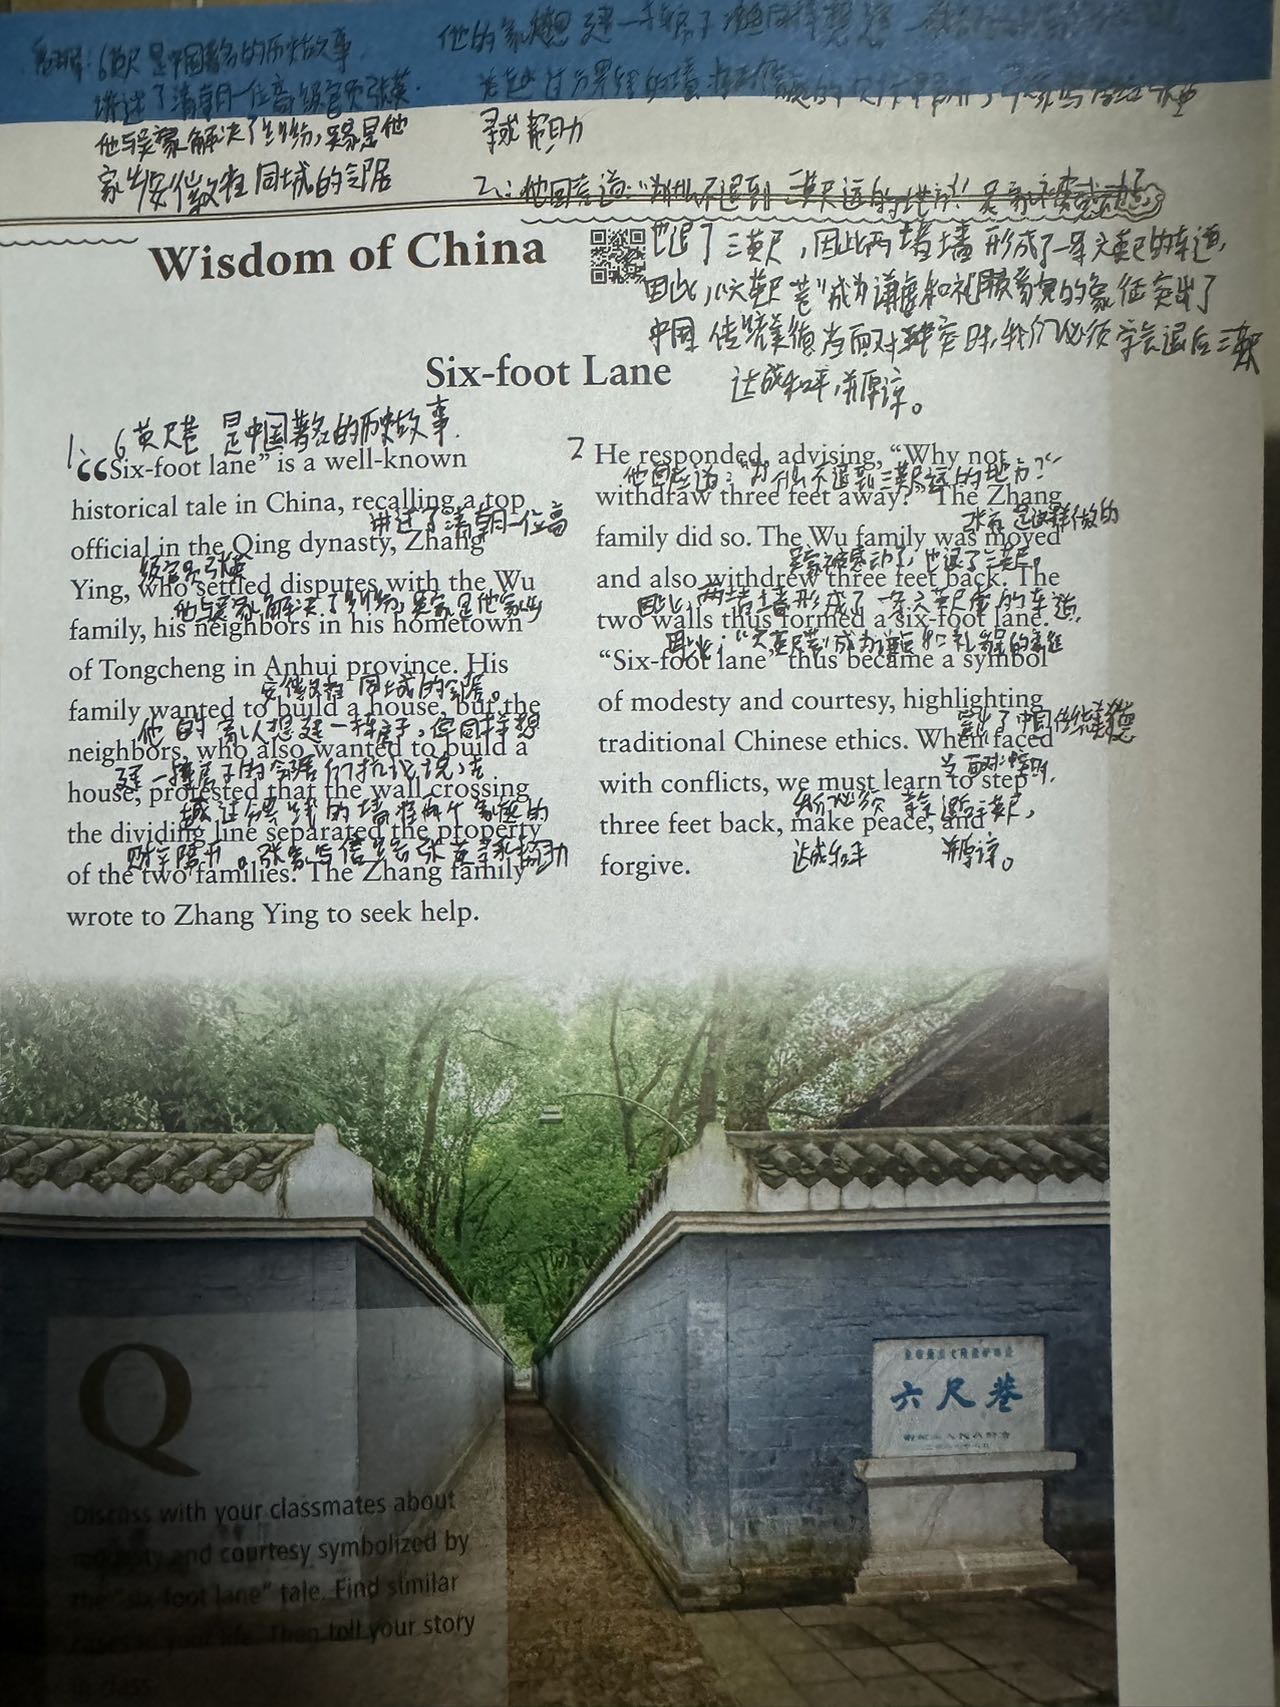 6英尺是中国著名的历史故事
讲述了清朝一位高级官员张英.
他与吴家解决了纠纷,吴家是他
家乡安徽在同城的邻居
寻求帮助
2、他回答道:"为什么不退到三英尺远的地方!吴家被感动了
也退了三英尺,因此两堵墙形成了一条六英尺的车道,
因此,"六英尺巷"成为谦虚和礼貌的象征突出了
中国传统美德当面对冲突时,我们必须学会退后三英尺
达成和平,并原谅。
Wisdom of China
Six-foot Lane
1、6英尺巷 是中国著名的历史故事.
“Six-foot lane” is a well-known
historical tale in China, recalling a top
讲述了清朝一位高
official in the Qing dynasty, Zhang
级官员张英
Ying, who settled disputes with the Wu
他与吴家解决了纠纷,吴家是他家乡
family, his neighbors in his hometown
of Tongcheng in Anhui province. His
安徽在同城的邻居。
family wanted to build a house, but the
他的家人想建一栋房子,但同样想
neighbors, who also wanted to build a
建一栋房子的邻居们抗议说,
house, protested that the wall crossing
越过分界线的墙将两个家庭的
the dividing line separated the property
财产隔开。张家写信给张英寻求帮助
of the two families. The Zhang family
wrote to Zhang Ying to seek help.
2 He responded, advising, “Why not
他回答道:"为什么不退到三英尺远的地方?"
withdraw three feet away?” The Zhang
张家是这样做的
family did so. The Wu family was moved
吴家被感动了,也退了三英尺。
and also withdrew three feet back. The
因此两堵墙形成了一条六英尺宽的车道.
two walls thus formed a six-foot lane.
因此,"六英尺巷"成为谦虚和礼貌的象征
“Six-foot lane” thus became a symbol
of modesty and courtesy, highlighting
突出了中国传统美德
traditional Chinese ethics. When faced
当面对冲突时,
with conflicts, we must learn to step
我们必须 学会退后三英尺,
three feet back, make peace, and
达成和平 并原谅。
forgive.
六尺巷
Q
Discuss with your classmates about
modesty and courtesy symbolized by
the “six-foot lane” tale. Find similar
cases in your life. Then tell your story
in class.